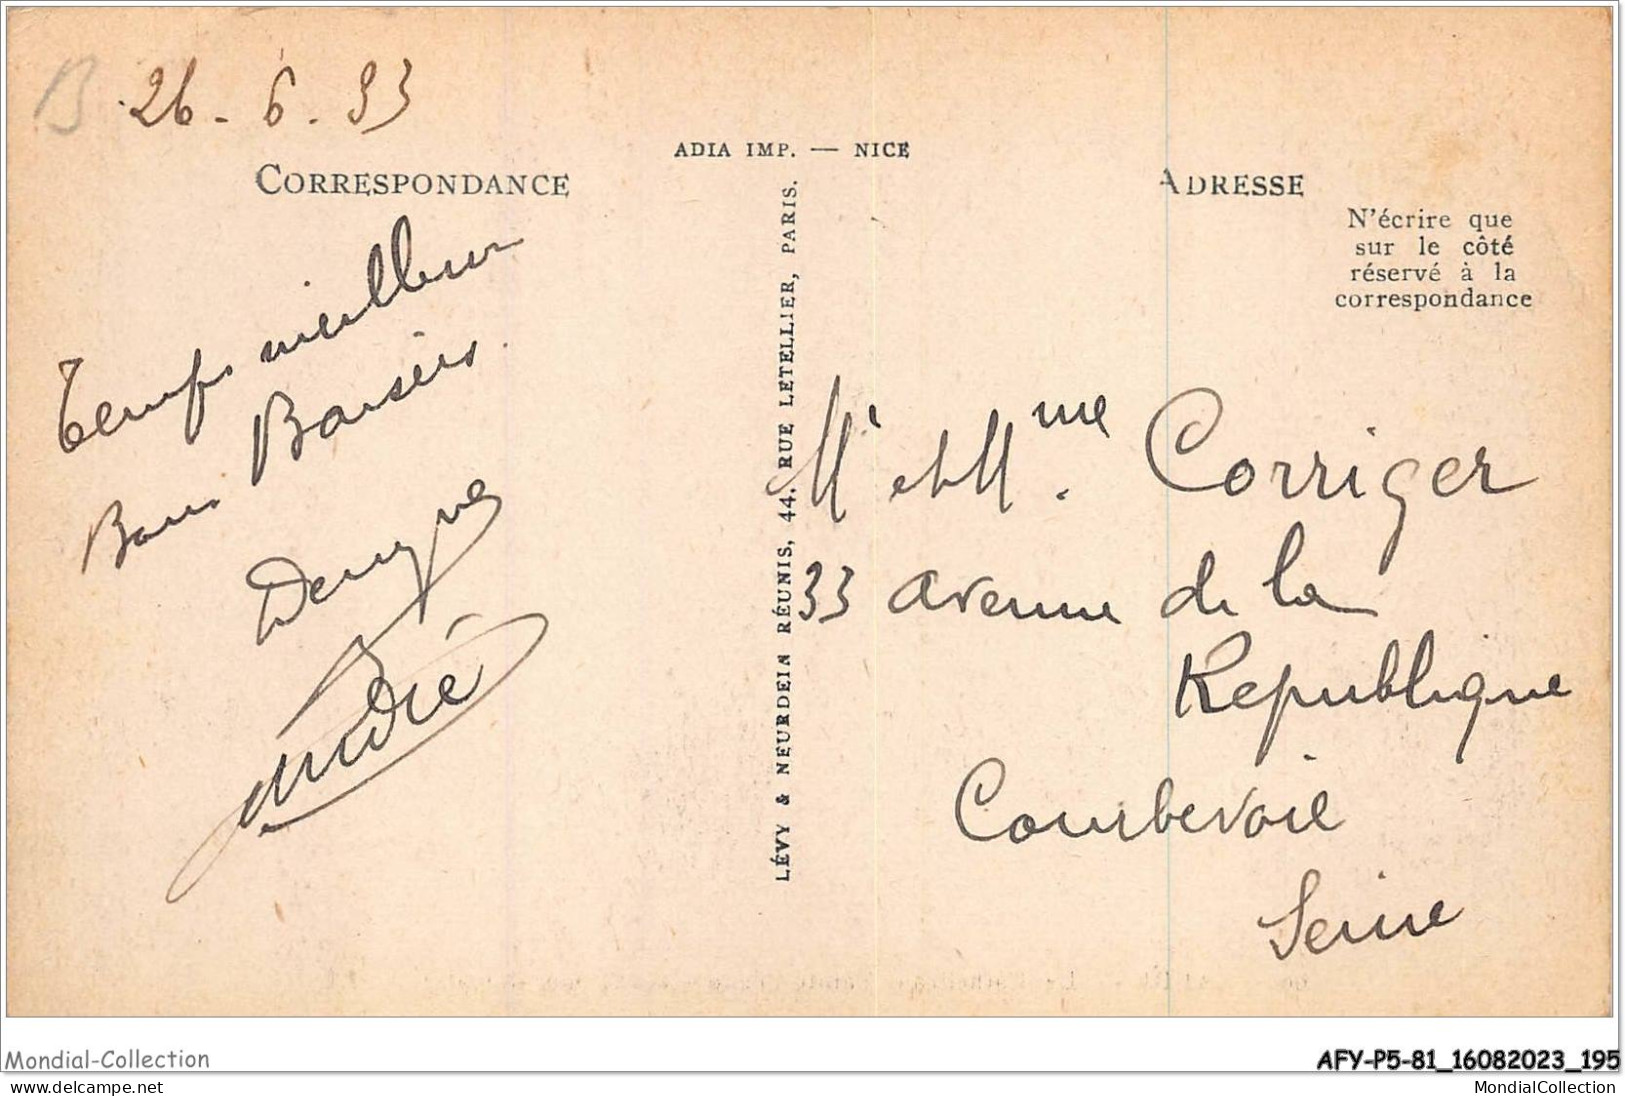 B
26 - 6 . 33
ADIA IMP. — NICE
CORRESPONDANCE
Temps meilleur
Bons Baisers.
Denyse
André
LÉVY & NEURDEIN RÉUNIS, 44, RUE LETELLIER, PARIS.
ADRESSE
N'écrire que
sur le côté
réservé à la
correspondance
Mr et Mme. Corriger
33 avenue de la
Republique
Courbevoie
Seine
Mondial-Collection
AFY-P5-81_16082023_195
www.delcampe.net
MondialCollection